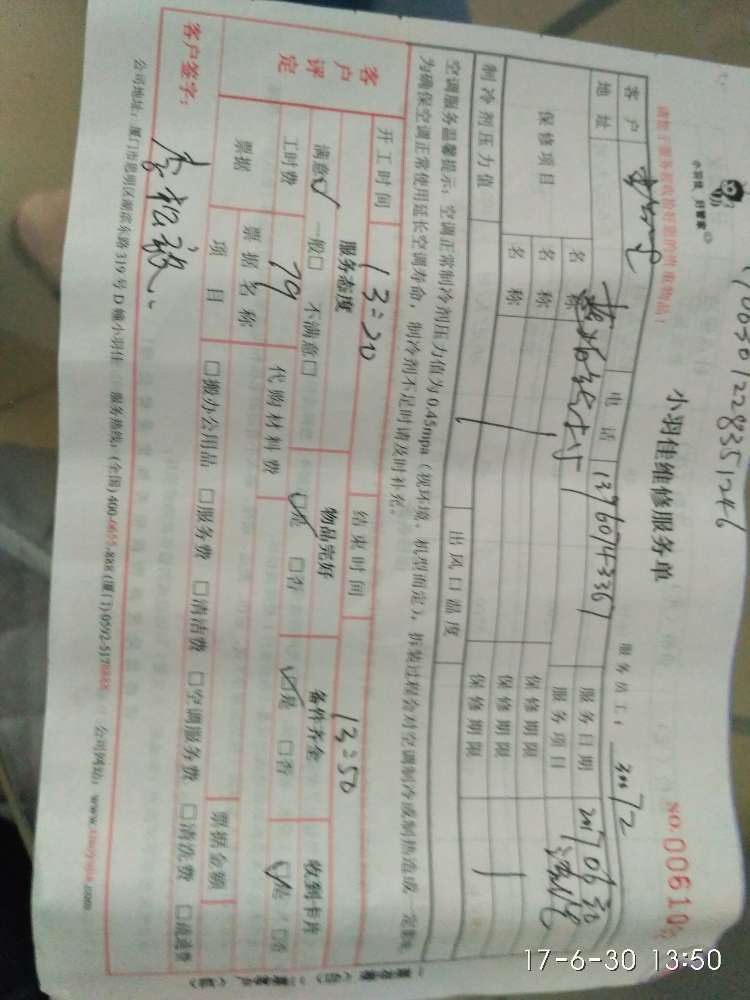 小羽佳维修服务单
NO.00610
请您于服务前收拾好您的贵重物品!
服务员工:
客户 电话 服务日期
地址 服务项目
保修项目 名称 保修期限
名称 保修期限
名称 保修期限
制冷剂压力值 出风口温度
空调服务温馨提示:空调正常制冷剂压力值为0.45mpa(视环境、机型而定),拆装过程会对空调制冷或制热造成一定影响
为确保空调正常使用延长空调寿命,制冷剂不足时请及时补充。
开工时间 13:20 结束时间 13:50
客户评定 服务态度 物品完好 备件齐全 收到卡片
满意☑ 一般□ 不满意□ ☑是 □否 ☑是 □否 ☑是 □否
工时费 79 代购材料费
票据 票据名称 票据金额
项目 □搬办公用品 □服务费 □清洁费 □空调服务费 □清洗费 □疏通费
客户签字:
公司地址:厦门市思明区湖滨东路319号D幢小羽佳 服务热线:(全国)400-0655-888 (厦门)0592-517 公司网站:www.
17-6-30 13:50